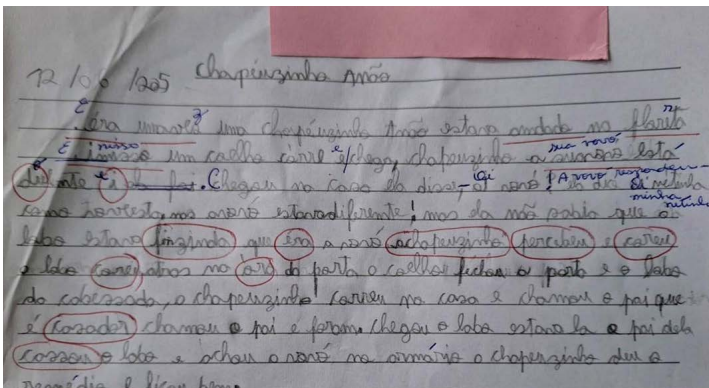 12/00/205 Chapéuzinho Anão
era umavez uma chapéuzinho Anão estava andado na floreta
e nisso sua novó
um coelho corre e chega, chapeuzinho a sunovó está
Chegou na casa ela disse, oi novó! A novó respondeu-
minha netinha
como novesta, mas a novó estava diferente! mas ela não sabia que o
lobo estava finzindo que era a novó achapeuzinho percebeu e correu
o lobo correu atras na ora da porta o coelho fichou a porta e o lobo
da cabessada, o chapeuzinho correu na casa e chamou o pai que
é cosador chamou o pai e foram. chegou o lobo estava la o pai dela
cossou o lobo e achou a novó no armário o chapeuzinho deu o
remédio e ficou bem.